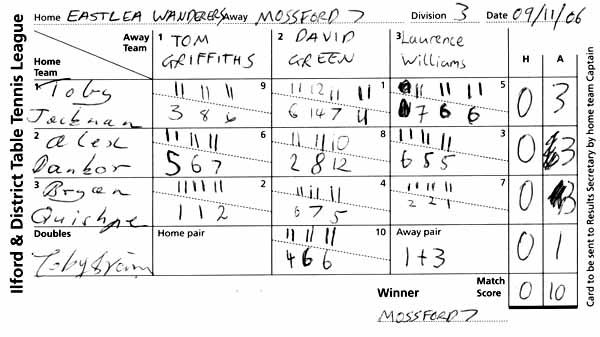 Ilford & District Table Tennis League
Home EASTLEA WANDERERS Away MOSSFORD 7 Division 3 Date 09/11/06
Away Team 1 TOM GRIFFITHS 2 DAVID GREEN 3 Laurence Williams H A
Home Team
1 Toby 9 11 11 11 1 11 12 11 11 5 11 11 11
3 8 6 6 14 7 4 7 6 6 0 3
2 Alex 6 11 11 11 8 11 11 10 3 11 11 11
5 6 7 2 8 12 6 5 5 0 3
3 Bryan 2 11 11 11 4 11 11 11 7 11 11 11
1 1 2 6 7 5 2 2 1 0 3
Doubles Home pair 10 11 11 11 Away pair
Toby 4 6 6 1+3 0 1
Winner Match Score 0 10
MOSSFORD 7
Card to be sent to Results Secretary by home team Captain